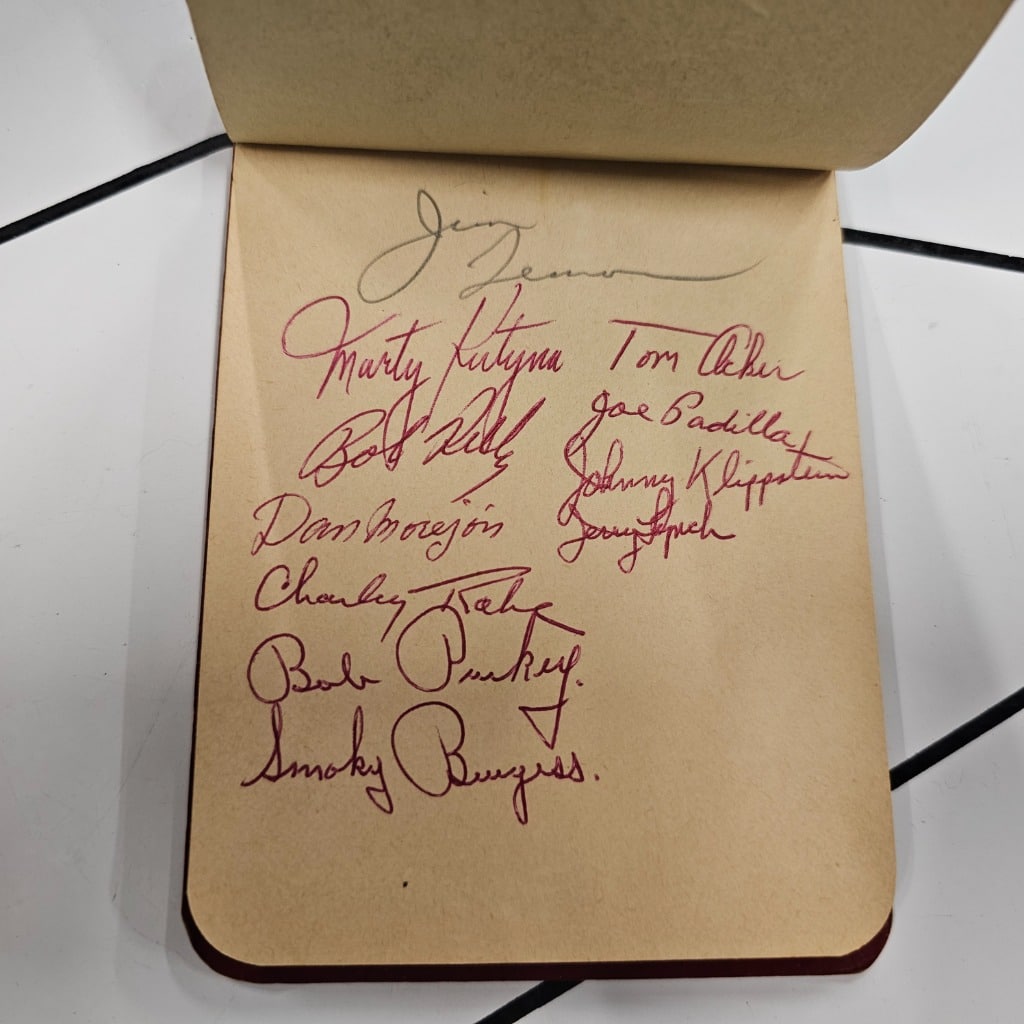 Jim
Lemon
Marty Kutyna
Bob Kelly
Dan Morejón
Charley Rabe
Bob Purkey.
Smoky Burgess.
Tom Acker
Joe Padilla
Johnny Klippstein
Jerry Lynch